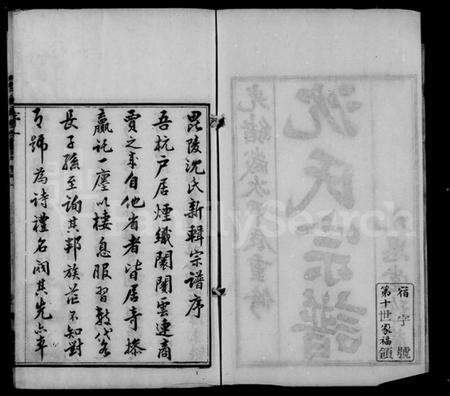 沈氏宗譜
光緒歲次
重修
宿字號
第十世家福領
毘陵沈氏新輯宗譜序
吾杭戶居煙織闤闠雲連商
賈之來自他省者皆居奇操
贏託一廛以棲息服習數代名
長子孫至詢其邦族茫不知對
即號為詩禮名閥其先亦率
FamilySearch